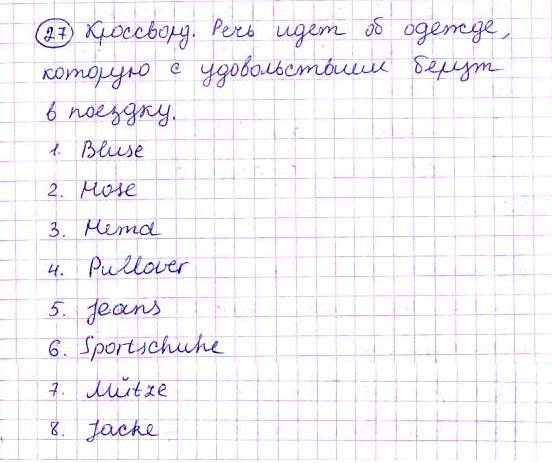 27 Кроссворд. Речь идет об одежде,
которую с удовольствием берут
в поездку.
1. Bluse
2. Hose
3. Hemd
4. Pullover
5. Jeans
6. Sportschuhe
7. Mütze
8. Jacke